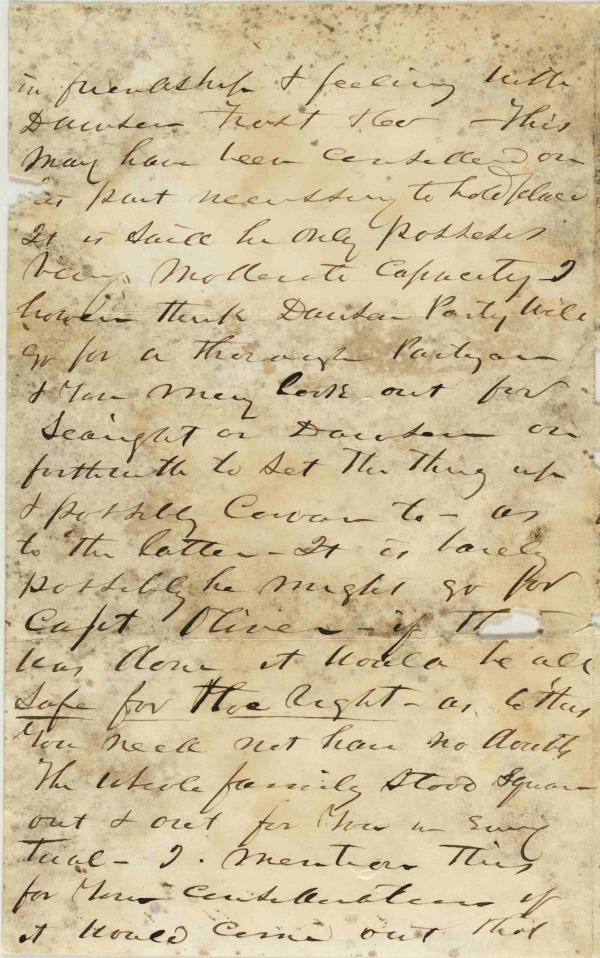 in friendship & feeling with
Dawson Frost & Co - This
may have been considered on
his part necessary to hold place
It is said he only possesses
very moderate Capacity - I
howevr think Dawson Party will
go for a thorough Partizan
& You may look out for
Searight or Dawson on
forthwith to set the thing up
& possibly Cowan to - as
to the latter - It is barely
possibly he might go for
Capt Oliver - if th
was done it would be all
safe for the Right - as to this
You need not have no doubts
The whole family stood square
out & out for You in Every
trial - I. mention this
for Your consideration if
it would come out that